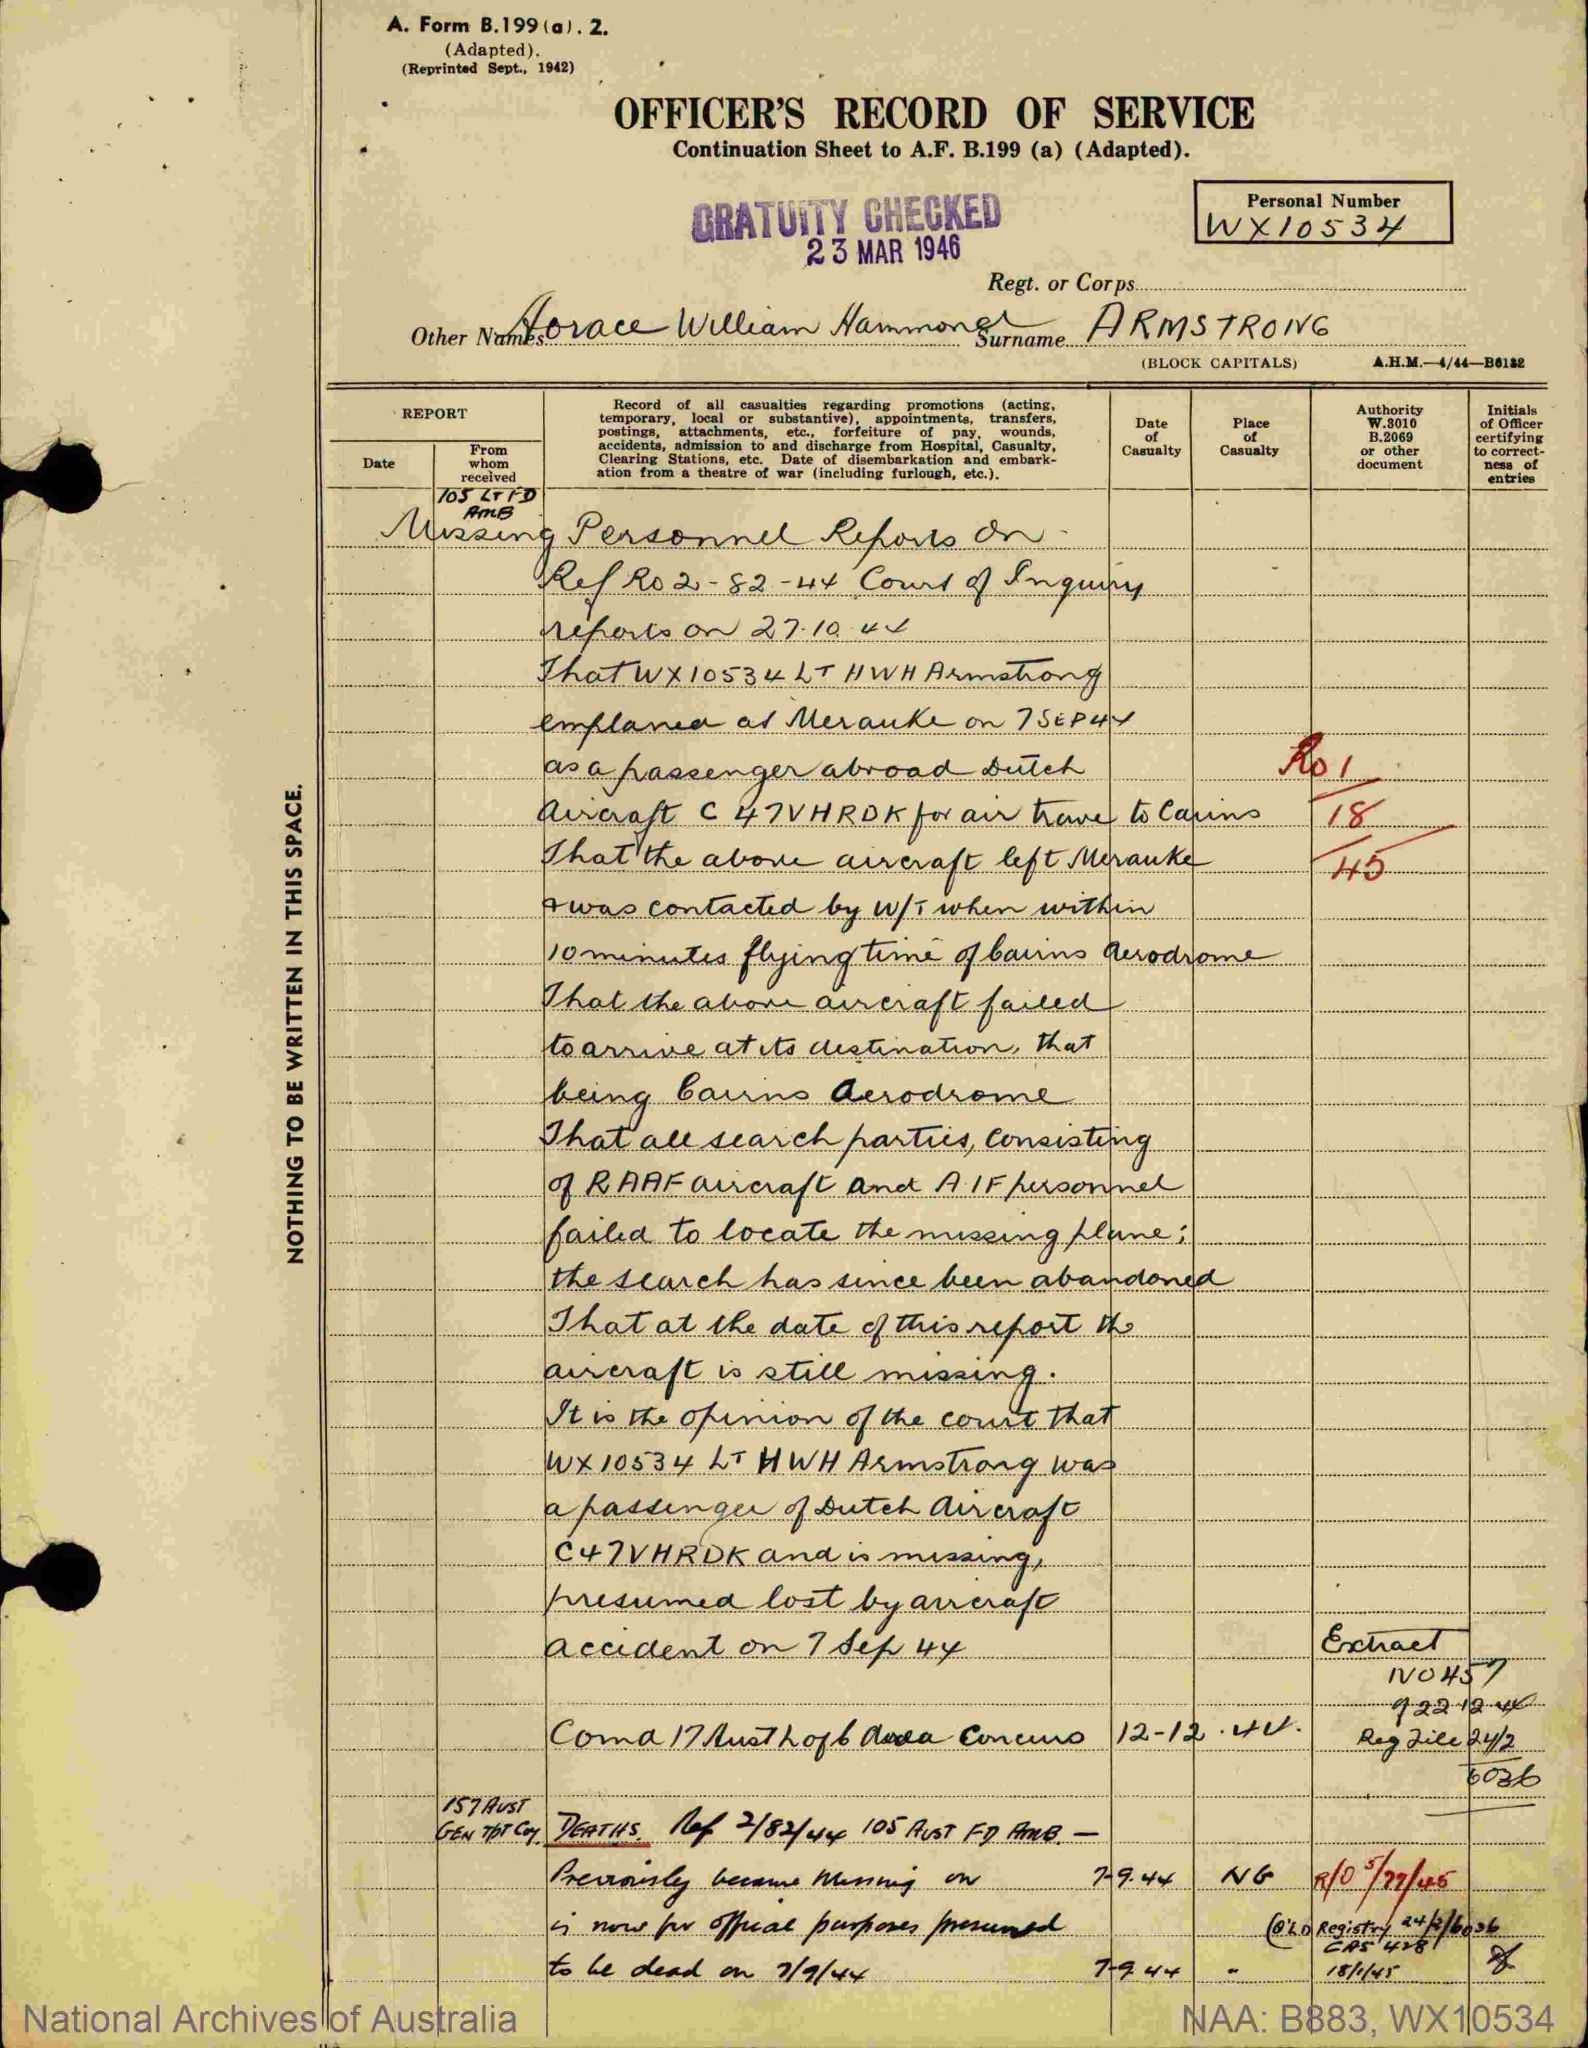 A. Form B.199 (a). 2.
(Adapted).
(Reprinted Sept., 1942)
OFFICER'S RECORD OF SERVICE
Continuation Sheet to A.F. B.199 (a) (Adapted).
GRATUITY CHECKED
23 MAR 1946
Personal Number
WX10534
Regt. or Corps
Other Names Horace William Hammond Surname ARMSTRONG
(BLOCK CAPITALS) A.H.M.—4/44—B6132
REPORT
Date
From whom received
Record of all casualties regarding promotions (acting,
temporary, local or substantive), appointments, transfers,
postings, attachments, etc., forfeiture of pay, wounds,
accidents, admission to and discharge from Hospital, Casualty,
Clearing Stations, etc. Date of disembarkation and embark-
ation from a theatre of war (including furlough, etc.).
Date of Casualty
Place of Casualty
Authority W.3010 B.2069 or other document
Initials of Officer certifying to correct-ness of entries
105 LT FD
AMB
Missing Personnel Reports on -
Ref Ro 2-82-44 Court of Inquiry
reports on 27.10.44
That WX10534 LT HWH Armstrong
emplaned at Merauke on 7 SEP 44
as a passenger abroad Dutch Ro 1
Aircraft C 47 VHRDK for air trave to Cairns 18
That the above aircraft left Merauke 45
& was contacted by W/T when within
10 minutes flying time of Cairns Aerodrome
That the above aircraft failed
to arrive at its destination, that
being Cairns Aerodrome
That all search parties, consisting
of RAAF aircraft and A.I.F personnel
failed to locate the missing plane;
the search has since been abandoned
That at the date of this report the
aircraft is still missing.
It is the opinion of the court that
WX10534 LT HWH Armstrong was
a passenger of Dutch Aircraft
C47 VHRDK and is missing,
presumed lost by aircraft
accident on 7 Sep 44
Extract
NO 457
9 22 12 44
Comd 17 Aust L of C Area Concurs 12-12.44. Reg File 24/2
6036
157 AUST
GEN TPT Coy. DEATHS. Ref 2/82/44 105 AUST FD AMB. —
Previously became Missing on 7-9.44 NG R/O 5/77/45
is now for official purposes presumed (Q'LD Registry 24/2/6036
CAS 428
to be dead on 7/9/44 7-9 44 " 18/1/45
NOTHING TO BE WRITTEN IN THIS SPACE.
National Archives of Australia
NAA: B883, WX10534